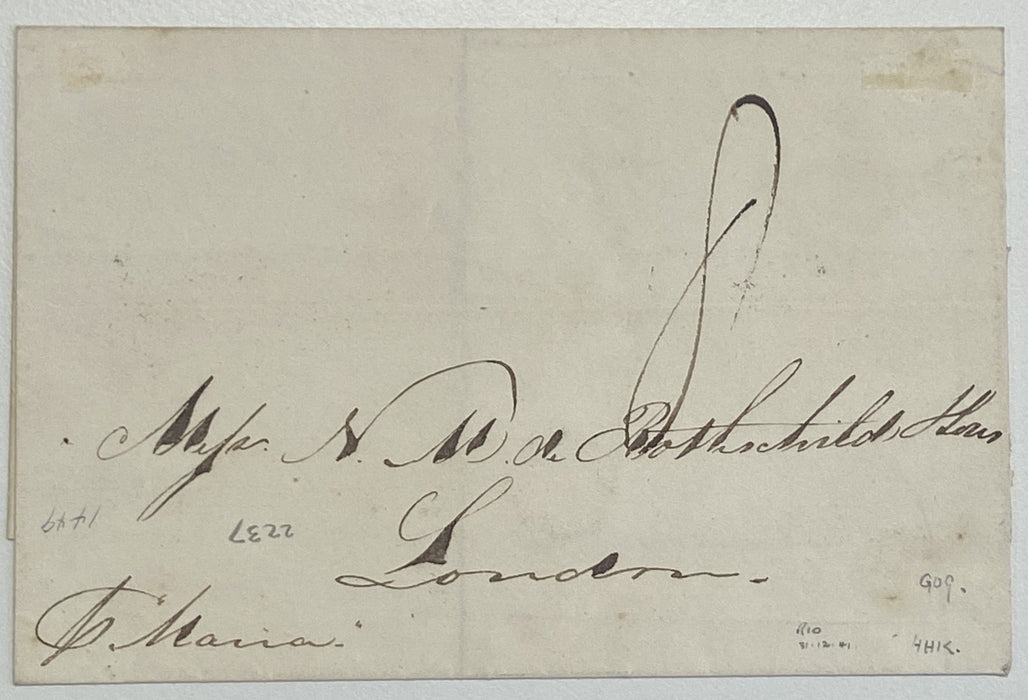 8
Messrs. N. M. de Rothschild & Sons
London.
1449
2237
p "Maria"
G09.
RIO
31·12·41.
4HK.